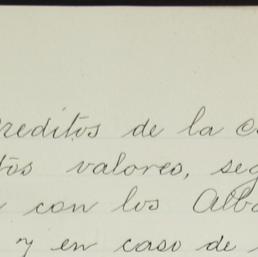 reditos de la
tos valores, seg
con los Alb
y en caso de